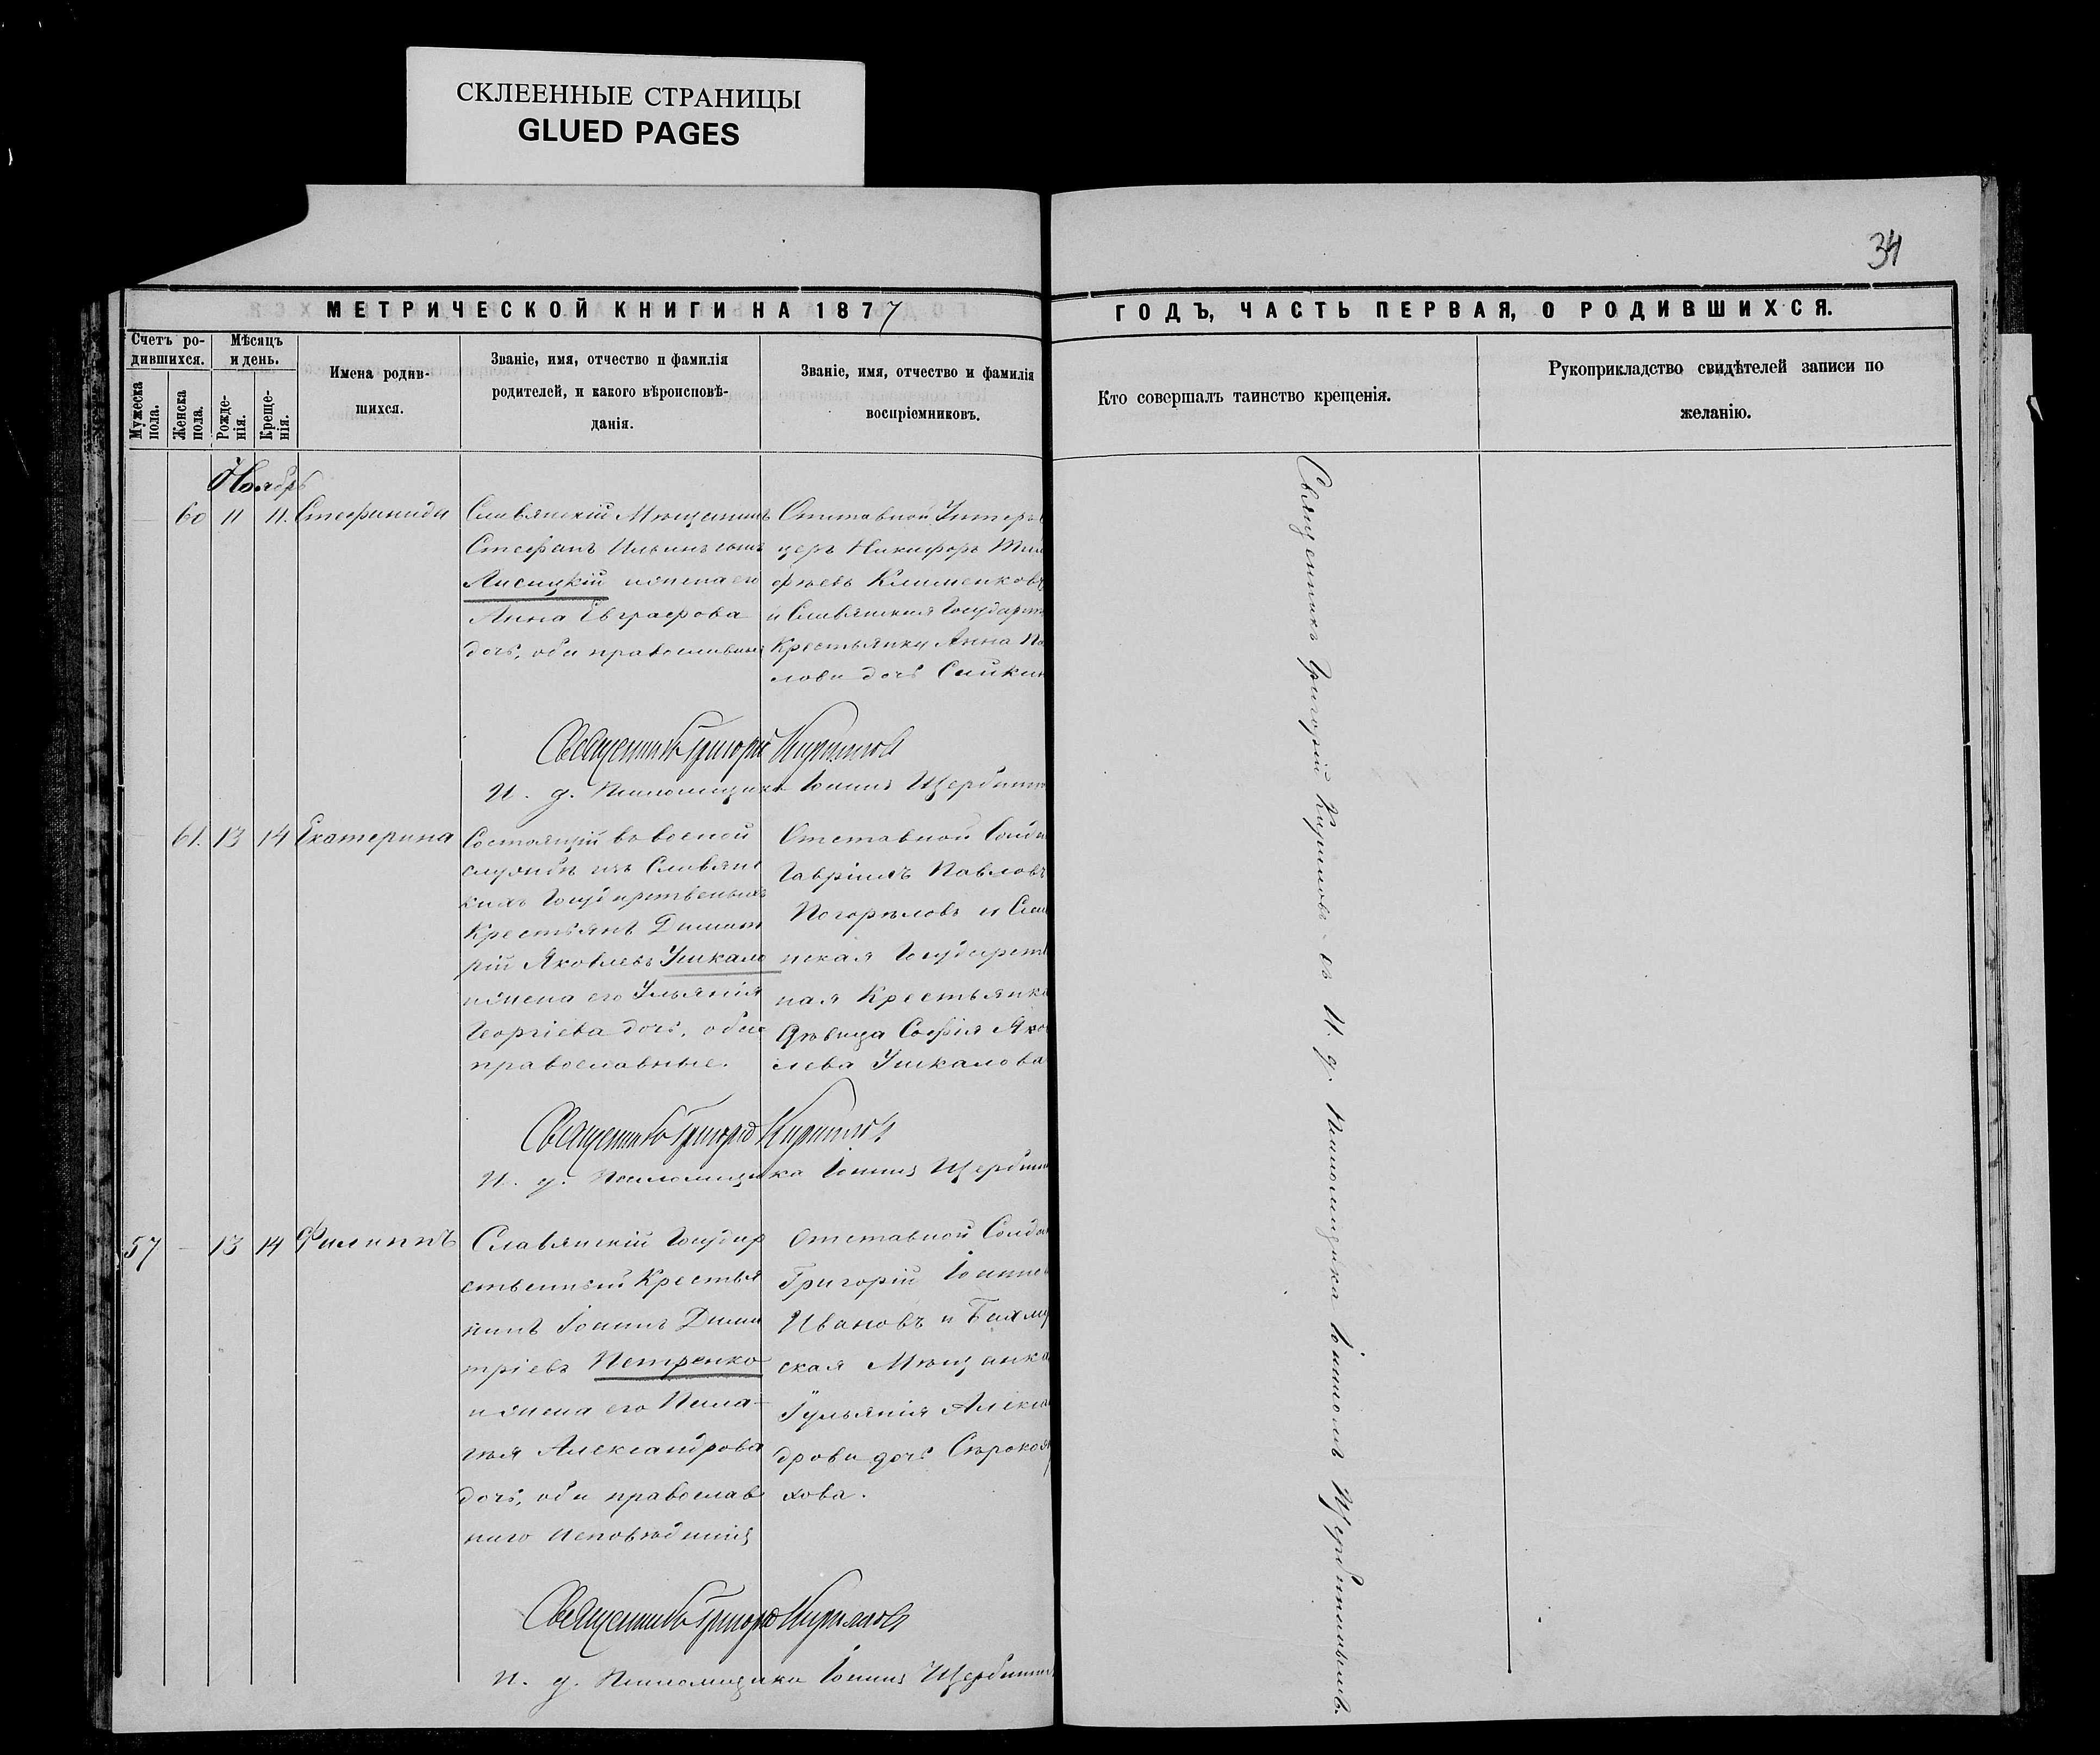 СКЛЕЕННЫЕ СТРАНИЦЫ
GLUED PAGES
34
МЕТРИЧЕСКОЙ КНИГИ НА 1877
ГОДЪ, ЧАСТЬ ПЕРВАЯ, О РОДИВШИХСЯ.
Счетъ ро-
дившихся.
Мужеска
пола.
Женска
пола.
Мѣсяцъ
и день.
Рожде-
нія.
Креще-
нія.
Имена родив-
шихся.
Званіе, имя, отчество и фамилія
родителей, и какого вѣроисповѣ-
данія.
Званіе, имя, отчество и фамилія
воспріемниковъ.
Кто совершалъ таинство крещенія.
Рукоприкладство свидѣтелей записи по
желанію.
Ноябрь
60 11 11. Стефанида
Славянскій Мѣщанинъ
Стефанъ
Лисицкій и жена его
Анна Евграфова
дочь, оба православные
Отставной Унтеръ
церъ Никифоръ
фѣевъ Клименковъ
и Славянская Государст
Крестьянка Анна Па
лова дочь
Священникъ Григорій Кириловъ
И. д. Псаломщика Іоаннъ
61. 13 14 Екатерина
Состоящій въ военой
службѣ изъ Славянс
кихъ Государственыхъ
Крестьянъ Димит
рій Яковлевъ Ушкало
и жена его Ульянія
Георгіева дочь, обое
православные.
Отставной Солда
Гавріилъ Павловъ
Погорѣловъ и Слав
нская Государств
ная Крестьянка
Дѣвица Софія Яко
лева Ушкалова
Священникъ Григорій Кириловъ
И. д. Псаломщика Іоаннъ
57 — 13 14 Филиппъ
Славянскій Государ
ственный Крестья
нинъ Іоаннъ Дими
тріевъ Петренко
и жена его Пела-
гѣя Александрова
дочь, оба православ
наго исповѣданія
Отставной Солда
Григорій Іоанно
Ивановъ и Бахму
ская Мѣщанка
Іульянія Алекса
дрова дочь
хова.
Священникъ Григорій Кириловъ
И. д. Псаломщика Іоаннъ
Священникъ Григорій Кириловъ съ И. д. Псаломщика Іоанномъ